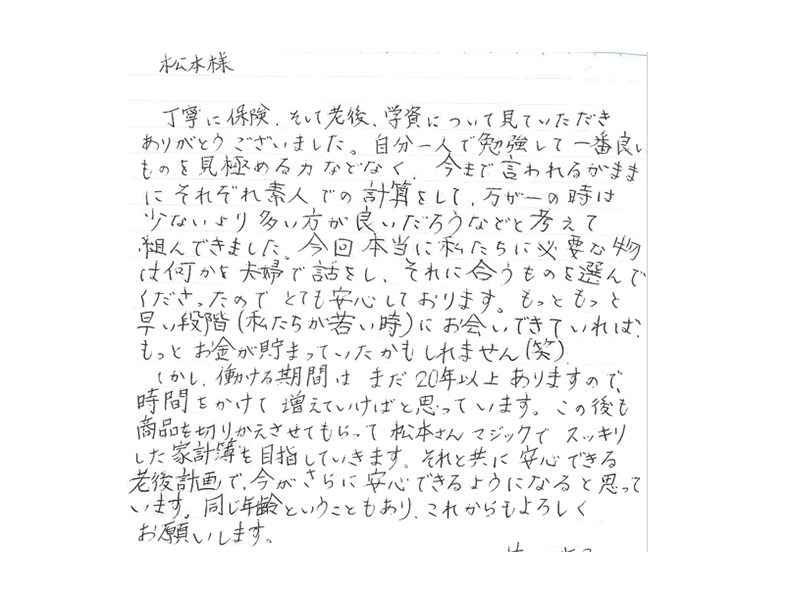 松本様
丁寧に保険、そして老後、学資について見ていただき
ありがとうございました。自分一人で勉強して一番良い
ものを見極める力などなく、今まで言われるがまま
にそれぞれ素人での計算をして、万が一の時は
少ないより多い方が良いだろうなどと考えて
組んできました。今回本当に私たちに必要な物
は何かを夫婦で話をし、それに合うものを選んで
くださったのでとても安心しております。もっともっと
早い段階(私たちが若い時)にお会いできていれば、
もっとお金が貯まっていたかもしれません(笑)
しかし、働ける期間はまだ20年以上ありますので、
時間をかけて増えていけばと思っています。この後も
商品を切りかえさせてもらって松本さんマジックでスッキリ
した家計簿を目指していきます。それと共に安心できる
老後計画で、今がさらに安心できるようになると思って
います。同じ年齢ということもあり、これからもよろしく
お願いします。